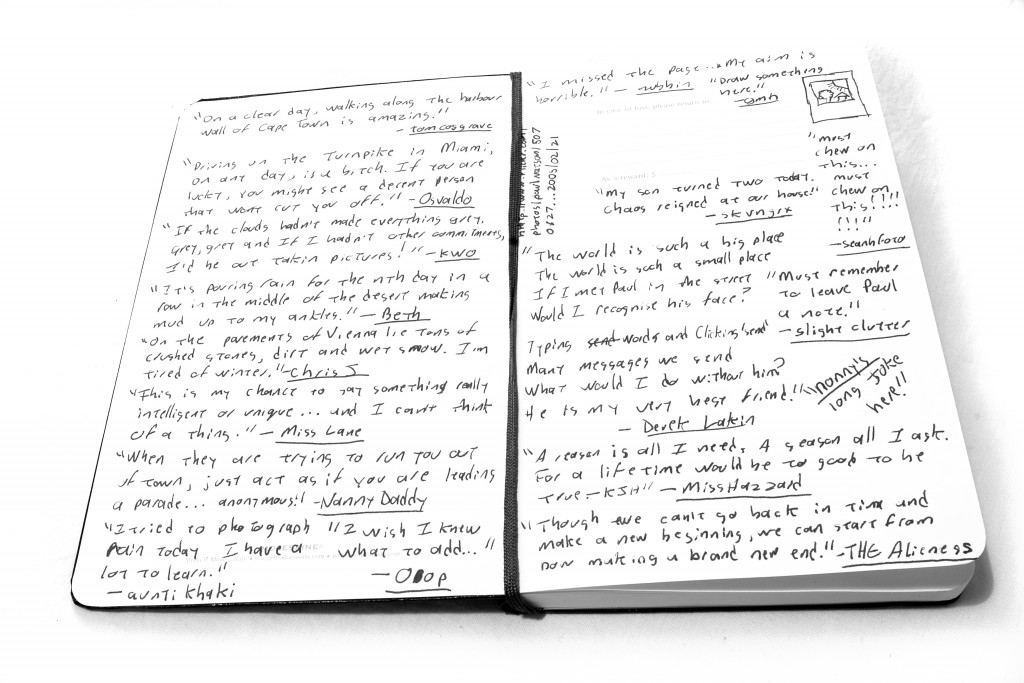 "On a clear day, walking along the harbour
wall of Cape Town is amazing."
- tomcosgrave
"Driving on the Turnpike in Miami,
on any day, is a bitch. If you are
lucky, you might see a decent person
that wont cut you off." - Osvaldo
"If the clouds hadn't made everything grey,
grey, grey and If I hadn't other commitments,
I'd be out takin pictures!" - KWO
"It's pouring rain for the nth day in a
row in the middle of the desert making
mud up to my ankles." - Beth
"On the pavements of Vienna lie tons of
crushed stones, dirt and wet snow. I'm
tired of winter." - Chris S
"This is my chance to say something really
intelligent or unique... and I can't think
of a thing." - Miss Lane
"When they are trying to run you out
of town, just act as if you are leading
a parade... anonymous" - Nanny Daddy
"I tried to photograph
rain today I have a
lot to learn."
- aunti khaki
"I wish I knew
what to add..."
- Ooop
"I missed the page... My aim is
horrible." - nubbin
"Draw something
here."
In case of loss, please return to:
As a reward: $
http://www.flickr.com/
photos/paulwatson/507
0627... 2005/02/21
"must
chew on
this...
must
chew on
this!!!!
!!!!"
- seanhfoto
"My son turned two today.
chaos reigned at our house!"
"The world is such a big place
The world is such a small place
If I met Paul in the street
Would I recognise his face?
Typing send words and Clicking 'send'
Many messages we send
What would I do without him?
He is my very best friend!"
- Derek Lakin
"Must remember
to leave Paul
a note."
- slight clutter
"nonny's
long joke
here!!
"A reason is all I need, A season all I ask.
For a lifetime would be to good to be
true - KJH" - MissHazzard
"Though we can't go back in time and
make a new beginning, we can start from
now making a brand new end." - THE Alieness